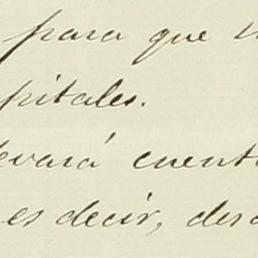 para que
pitales.
evará cuent
es decir, des